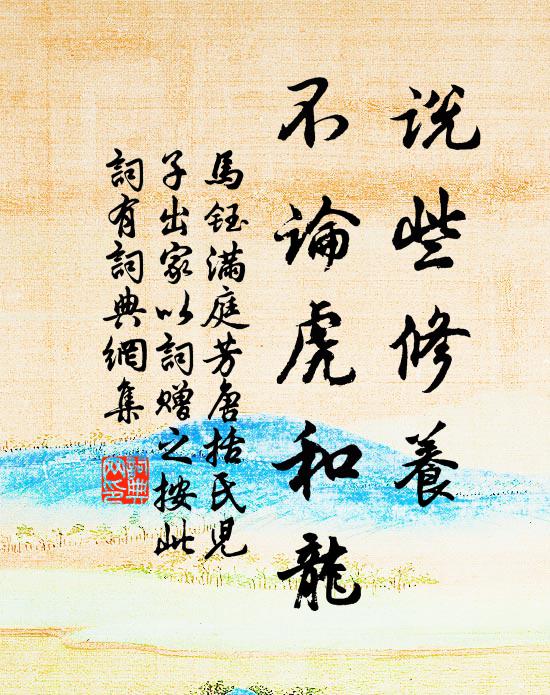 說些修養
不論虎和龍
馬鈺滿庭芳唐括氏兒
子出家以詞贈之按此
詞有詞典網集
詞典